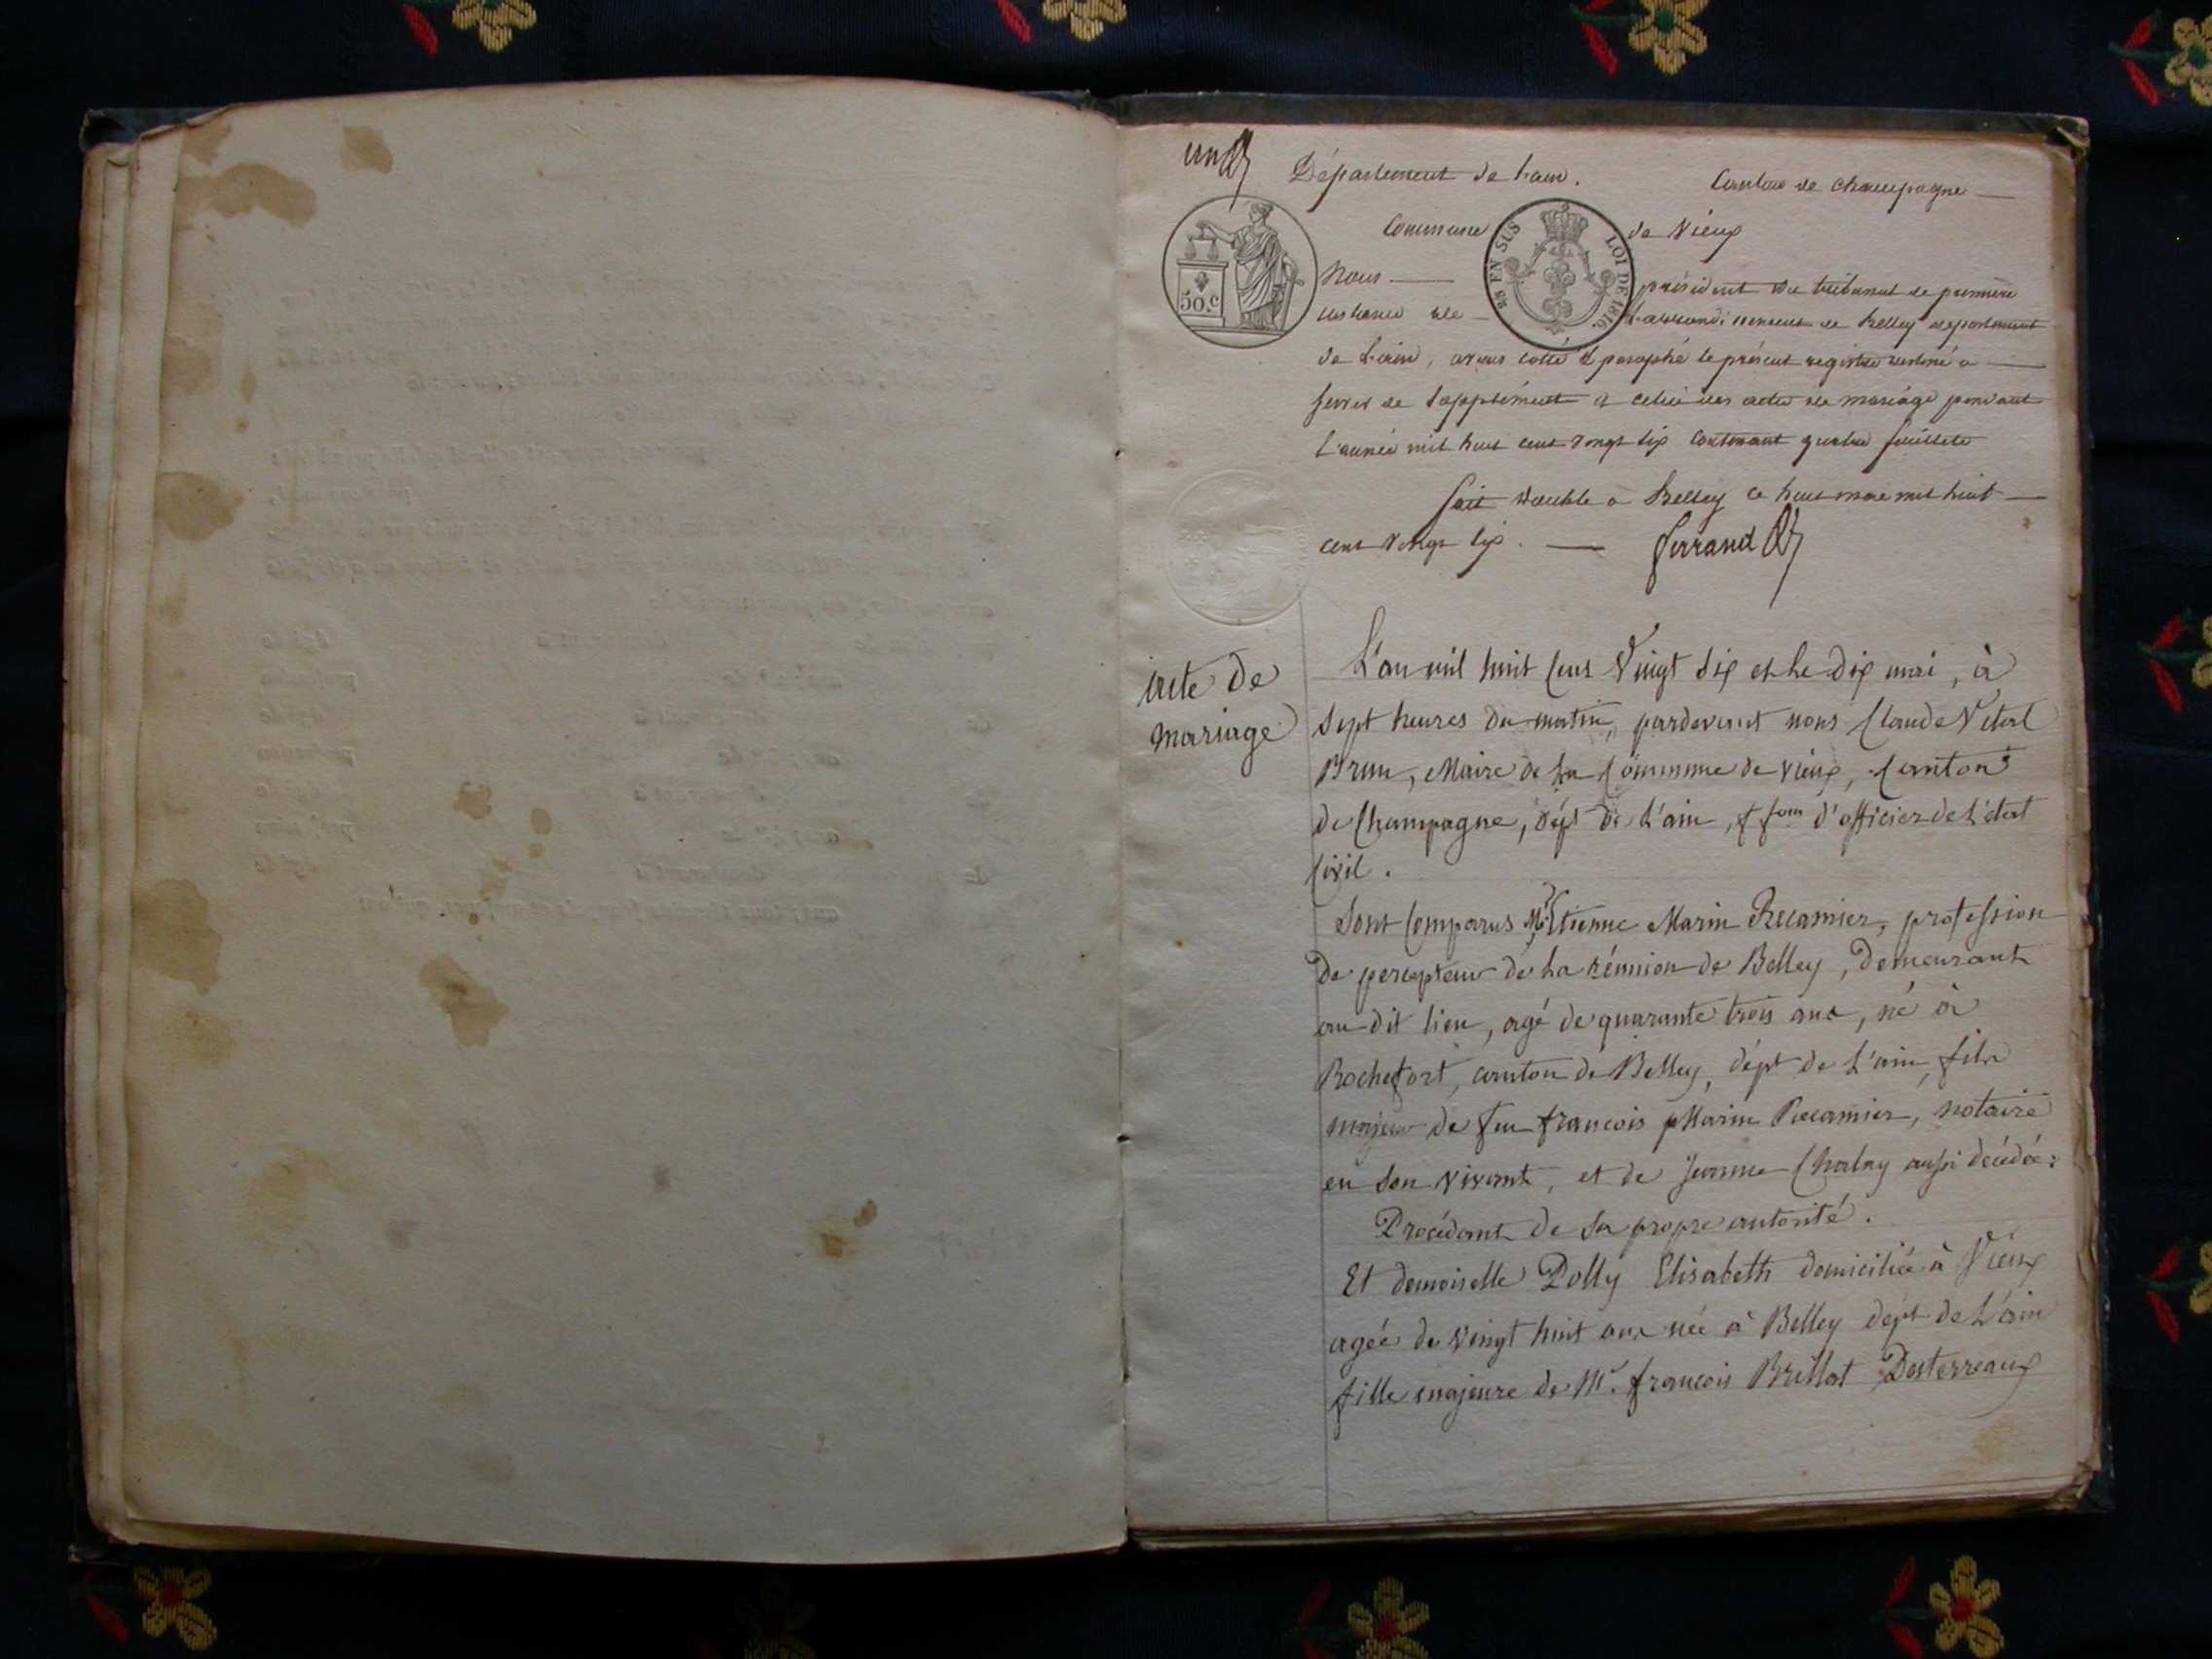 un
Département de L'ain. Canton de Champagne
Commune de Vieux
Nous président du tribunal de première
instance de L'arrondissement de Belley departement
de L'ain, avons cotté & paraphé le présent registre destiné a
servir de supplément a celui des actes de mariage pendant
L'année mil huit cent vingt six contenant quatre feuillets
fait double à Belley ce huit mai mil huit
cent vingt six. ferrand
50.C
25 EN SUS LOI DE 1816.
acte de
mariage
L'an mil huit Cent Vingt Six et le dix mai, à
Sept heures du matin, pardevant nous Claude Vital
Brun, Maire de La Commune de Vieux, Canton
de Champagne, dépt de L'ain, f fon d'officier de L'état
Civil.
Sont Comparus Mr Etienne Marin Recamier, profession
de percepteur de La réunion de Belley, Demeurant
au dit lieu, agé de quarante trois ans, né à
Rochefort, canton de Belley, dépt de L'ain, fils
majeur de feu françois Marin Recamier, notaire
en Son vivant, et de Jeanne aussi décédée:
Procédant de Sa propre autorité.
Et demoiselle Dolly Elisabeth domiciliée à Vieux
agée de vingt huit ans née à Belley dépt de L'ain
fille majeure de Mr. françois Brillat Desterreaux